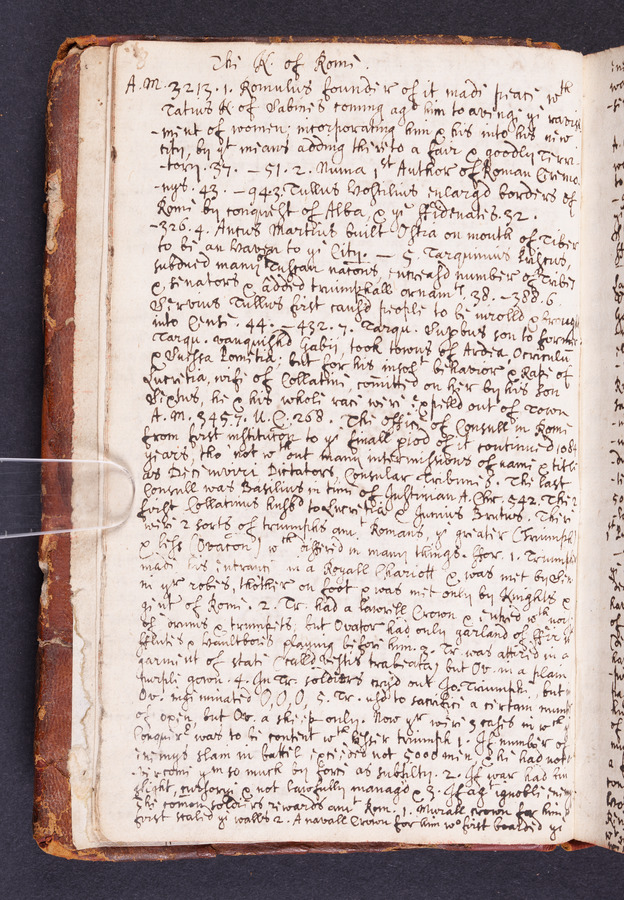 The K. of Rome.
A.M. 3213. 1. Romulus founder of it made peace wth
Tatius K. of Sabines coming agt him to avenge ye ravish
-ment of women; incorporating him & his into his new
city, by yt means adding thereto a fair & goodly Terri-
-tory. 37. — 51. 2. Numa 1st Author of Roman Ceremo
-nys. 43. — 943. Tullus Hostilius enlargd borders of
Rome by conquest of Alba, & ye ffidenates. 32.
-326. 4. Ancus Martius built Ostia on mouth of Tiber
to be an Haven to ye City. — 5. Tarquinius Priscus,
subdued many Tuscan nacons, encreasd number of Tribes
& senators & added triumphall ornamts. 38. — 388. 6.
Servius Tullus first causd people to be inrolld & brought
into Cents. 44. — 432. 7. Tarqu. Supbus son to former
Tarqu. vanquishd Gabii, took towns of Ardea Ocriculu
& Suessa Pometia; but for his insolt behavior & Rape of
Lucretia, wife of Collatine, comitted on her by his son
Sextus, he & his whole race were expelld out of Town
A.M. 3457. U.C. 268. The office of Consull in Rome
from first institution to ye finall piod of it continued 1084
years, tho not wthout many intermissions of name & title
as Decemviri Dictators, Consular Tribunes. The last
Consull was Basilius in time of Justinian A. Chr. 542. The 2
first Collatinus husbd to Lucretia & Junius Brutus. There
were 2 sorts of triumphs amt Romans, ye greater (Triumph)
& less (Ovacon) wch differed in many things. ffor 1. Triumpher
made his entrance in a Royall Chariott & was met by Sen
in yr robes, thother on foot & was met only by Knights &
gent of Rome. 2. Tr. had a lawrell Crown & entred wth noys
of drums & trumpets, but Ovator had only garland of ffirr wth
fflutes & Hautbois playing before him. 3. Tr. was attired in a
garment of state (calld vestis trabeata) but Ov. in a plain
purple gown. 4. In Tr. soldiers cryd out Jo. Triumphe, but in
Ov. ingeminated O, O, O, 5. Tr. usd to sacrifice a certain numb
of oxen, but Ov. a sheep only. Now yr were 3 cases in wch
Conquerr was to be content wth lesser triumph 1. If number of
enemys slain in battle exceeded not 5000 men & he had not
-vercome ym so much by force as subtilty. 2. If war had bin
slight, cursory & not lawfully managd & 3. If agt ignoble enemy
The comon soldiers rewards amt Rom. 1. Murall crown for him yt
first scaled ye walls 2. A navall Crown for him wo first boarded ye